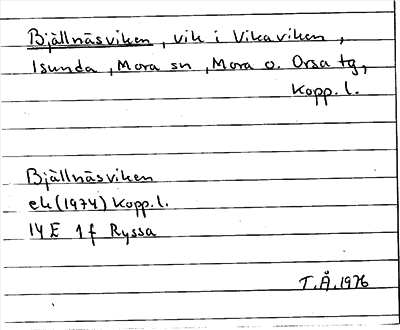 Bjällnäsviken, vik i Vikaviken,
Isunda, Mora sn, Mora o. Orsa tg,
Kopp. l.
Bjällnäsviken
ek (1974) Kopp. l.
14 E 1 f Ryssa
T.Å. 1976